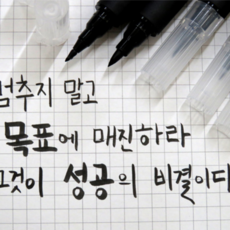 멈추지 말고
목표에 매진하라
그것이 성공의 비결이다